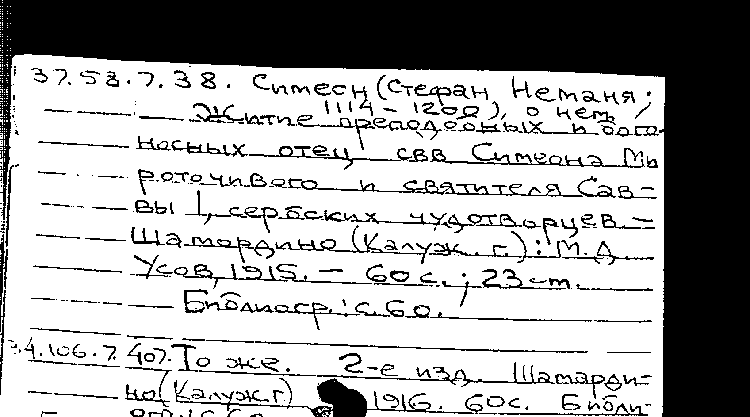 37.58.7.38. Симеон (Стефан Неманя;
1114 - 1200), о нем
Житие преподобных и бого-
носных отец свв Симеона Ми
роточивого и святителя Сав-
вы I, сербских чудотворцев. -
Шамардино (Калуж. г.): М.Д.
Усов, 1915. - 60 с.; 23 см.
Библиогр.: с. 60.
34.106.7.407. То же. 2-е изд. Шамарди-
но (Калуж.г) 1916. 60с. Библи-
огр.: с. 60